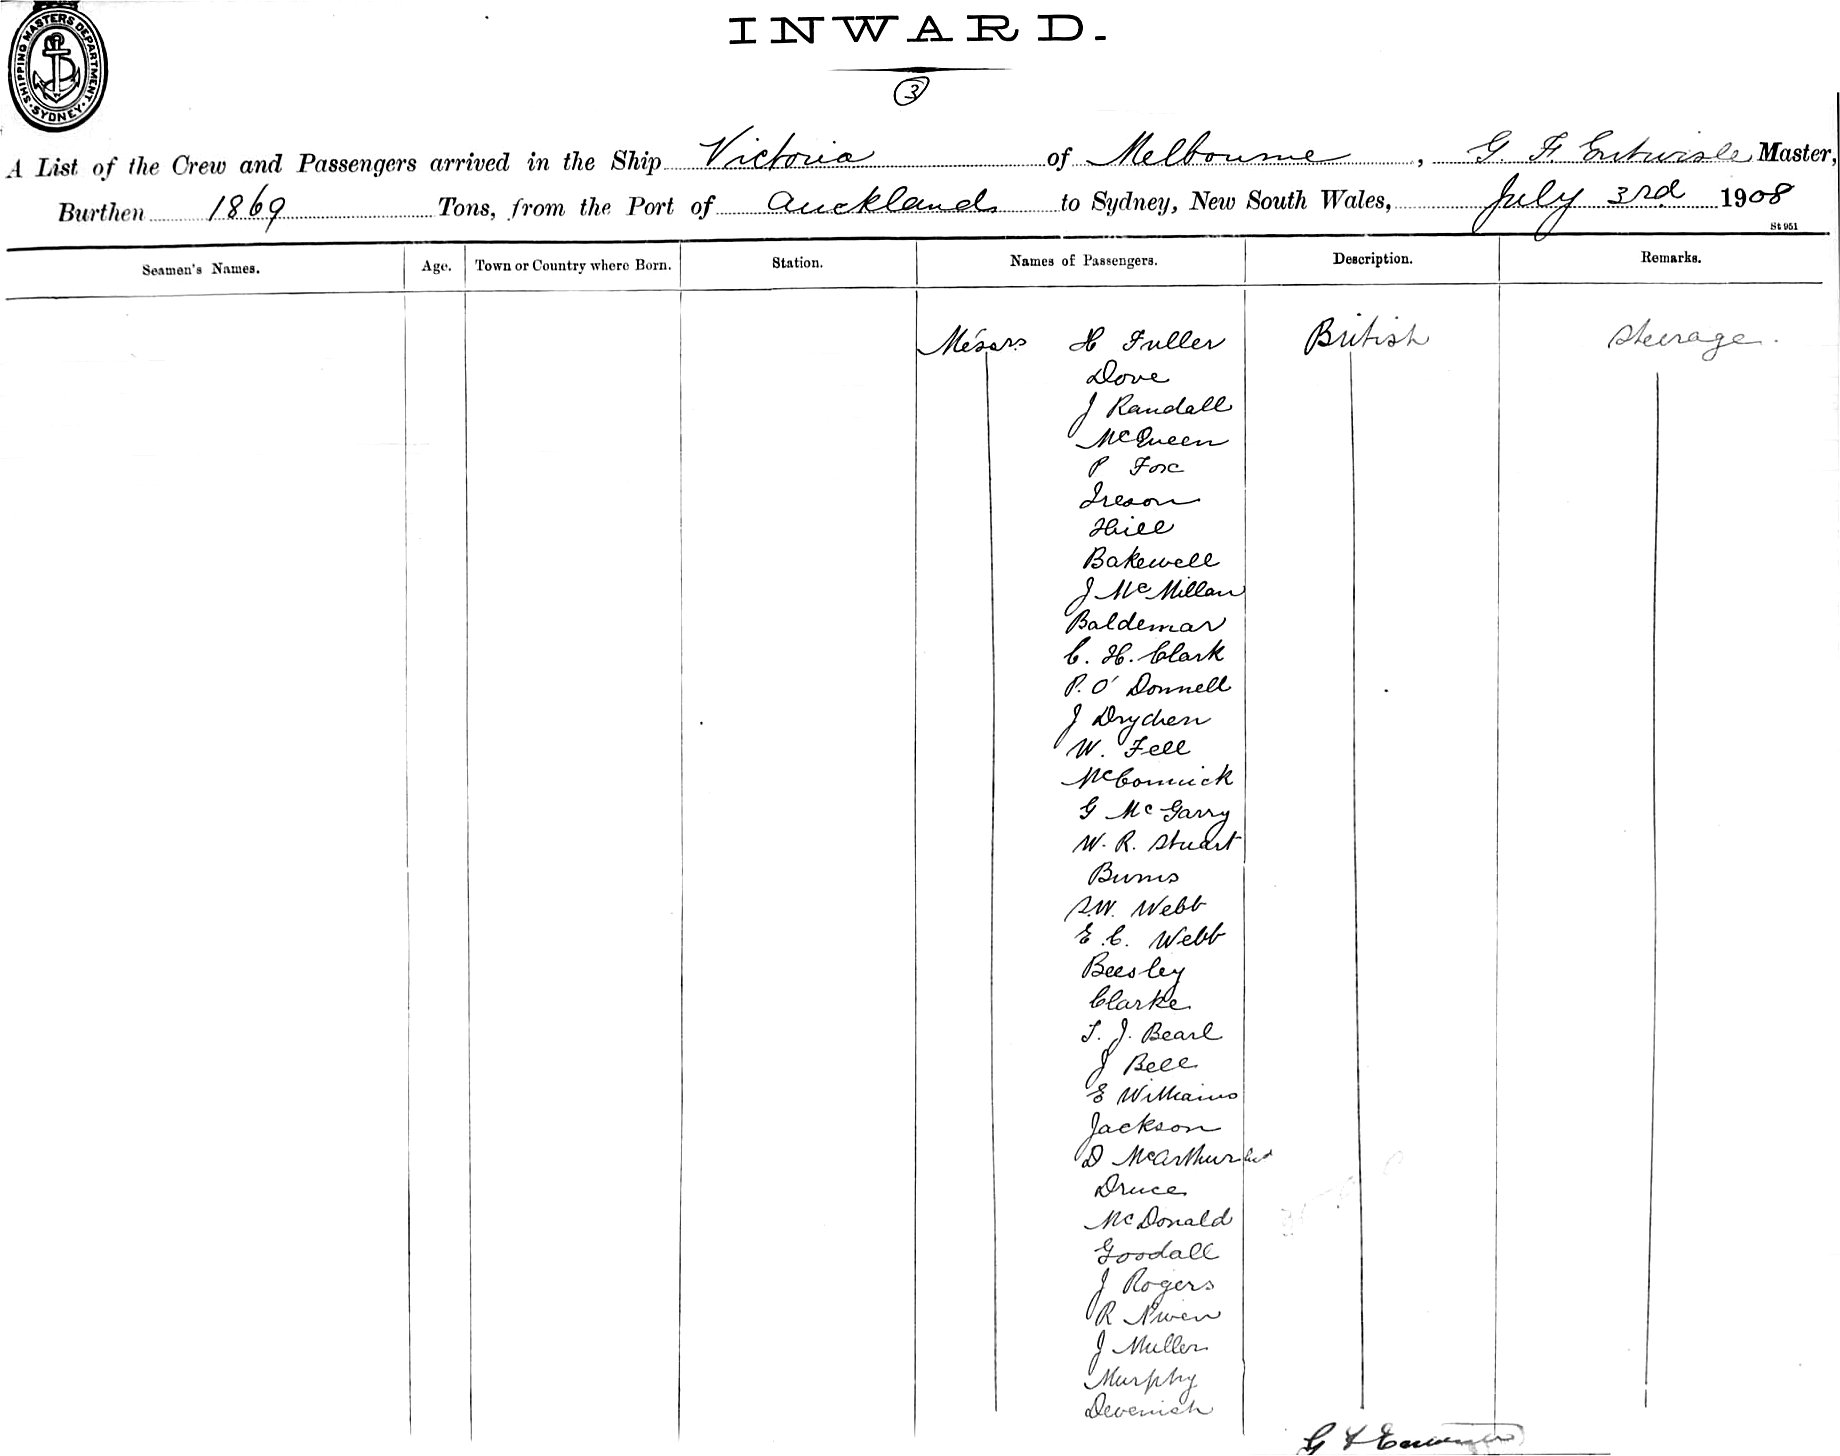 SHIPPING MASTERS DEPARTMENT
SYDNEY
INWARD.
3
A List of the Crew and Passengers arrived in the Ship Victoria of Melbourne, G. F. Entwisle Master,
Burthen 1869 Tons, from the Port of Aucklands to Sydney, New South Wales, July 3rd 1908
St 951
Seamen's Names. Age. Town or Country where Born. Station. Names of Passengers. Description. Remarks.
Messrs H Fuller British Steerage.
Dove
J Randall
McQueen
P Fox
Ireson
Hill
Bakewell
J McMillan
Baldemar
C. H. Clark
P. O'Donnell
J Dryden
W. Fell
McCormick
G McGarry
W. R. Stuart
Burns
S.W. Webb
E. C. Webb
Beesley
Clarke
T. J. Bearl
J Bell
E Williams
Jackson
D McArthur
Druce
McDonald
Goodall
J Rogers
R Niven
J Muller
Murphy
Devenish
G F Entwisle